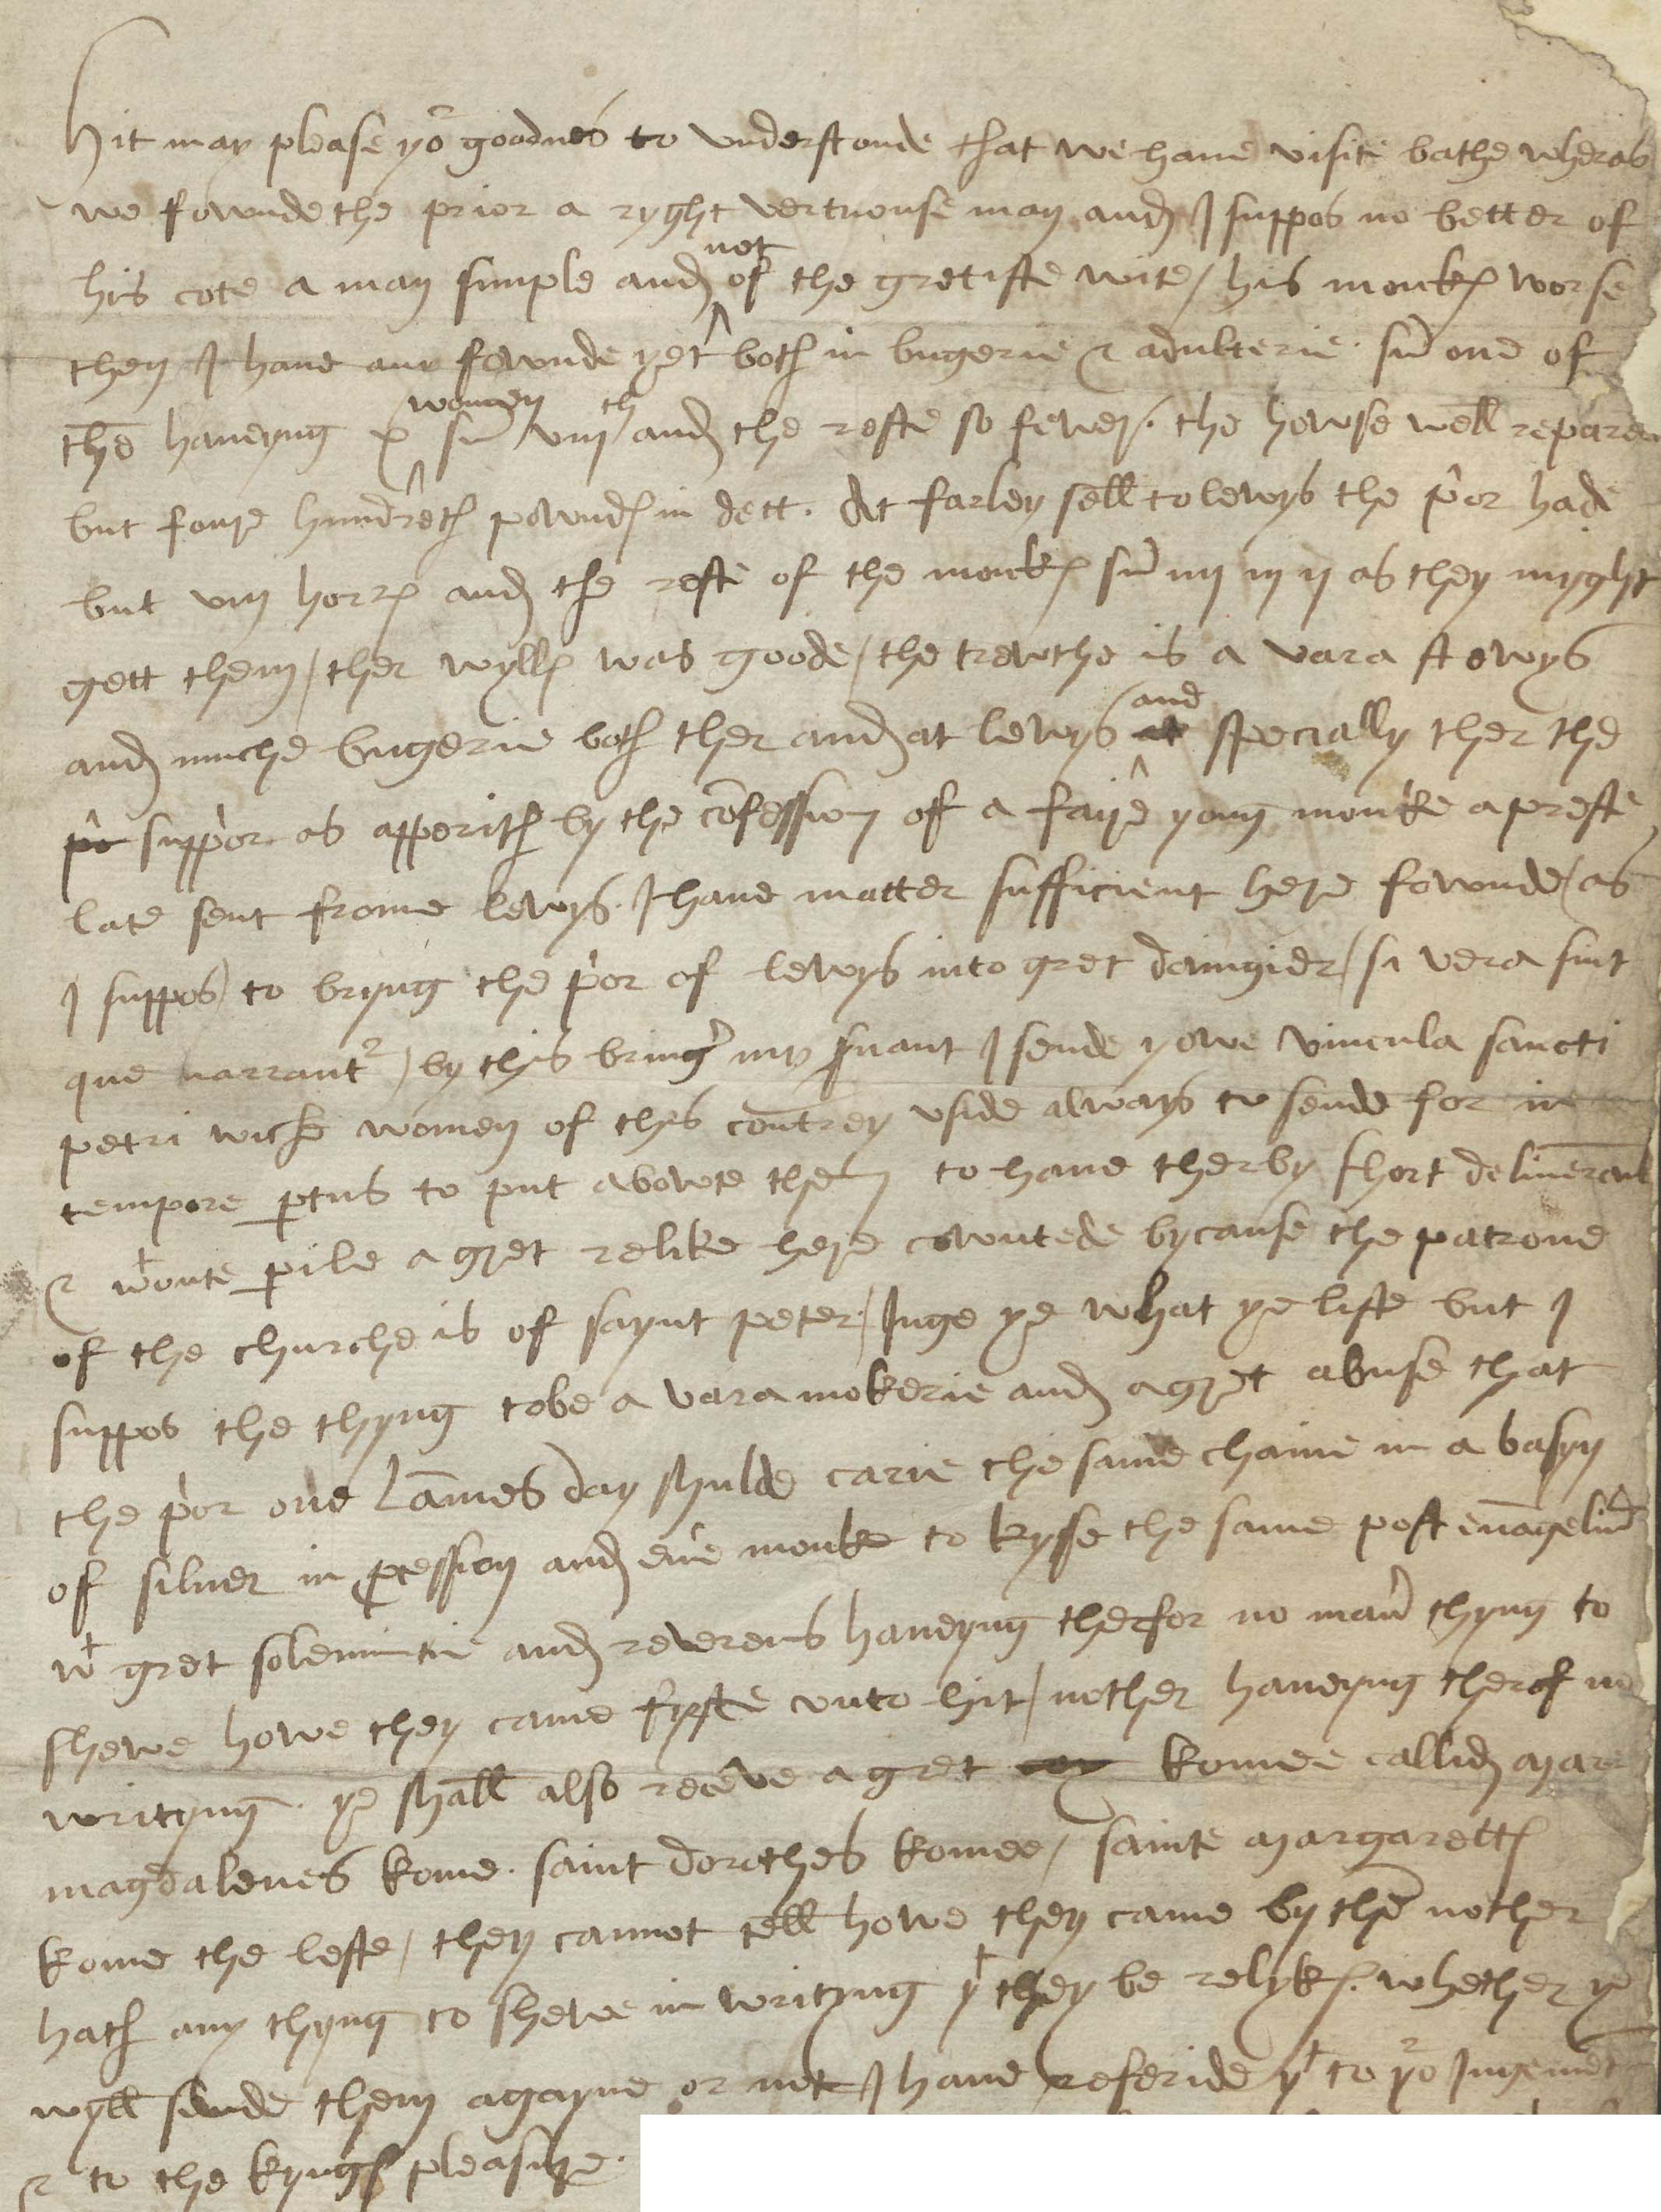 Hit may please yor goodnes to understonde that we have visite bathe wheras
we fownde the prior a ryght vertuouse man and I suppos no better of
his cote a man simple and not of the gretiste wite / his monkes worse
then I have any fownde yet both in bugerie & adulterie . sum one of
them haveyng x women sum viijth and the reste so fewer . the howse well reparede
but foure hundreth powndes in dett . At farley sell to lewys the p'or hade
but viij horrs and the reste of the monkes sum iiij iij ij as they myght
gett them / ther wylles was goode / the trewthe is a vara stewys
and muche bugerie both ther and at lewys at and specially ther the
pr suppor as apperith by the confession of a faire yong monke a preste
late sent frome lewys . I have matter sufficient here fownde / as
I suppos / to bryng the p'or of lewys into gret daingier / si vera sint
que narrantr / by this bringer my servant I sende yowe vincula sancti
petri wiche women of thes contrey uside always to sende for in
tempore partus to put abowte them to have therby short deliverance
& wtoute perile a gret relike here cowntede bycause the patrone
of the churche is of saynt peter / Juge ye what ye liste but I
suppos the thyng tobe a vara mokerie and a gret abuse that
the p'or one Lammes day shulde carie the same chaine in a basyn
of silver in procession and every monke to kysse the same post evangelium
wt gret solemnitie and reverens haveyng therfor no maner thyng to
shewe howe they came fyrste unto hit / nother haveyng therof in
writyng . ye shall also receve a gret kome callid Mare
magdalenes kome . saint dorothes kome / sainte Margarettes
kome the leste / they cannot tell howe they came by them nother
hath any thyng to shewe in writyng yt they be relykes . whether ye
wyll sende them agayne or not I have referide yt to yor Jugement
& to the kynges pleasure .